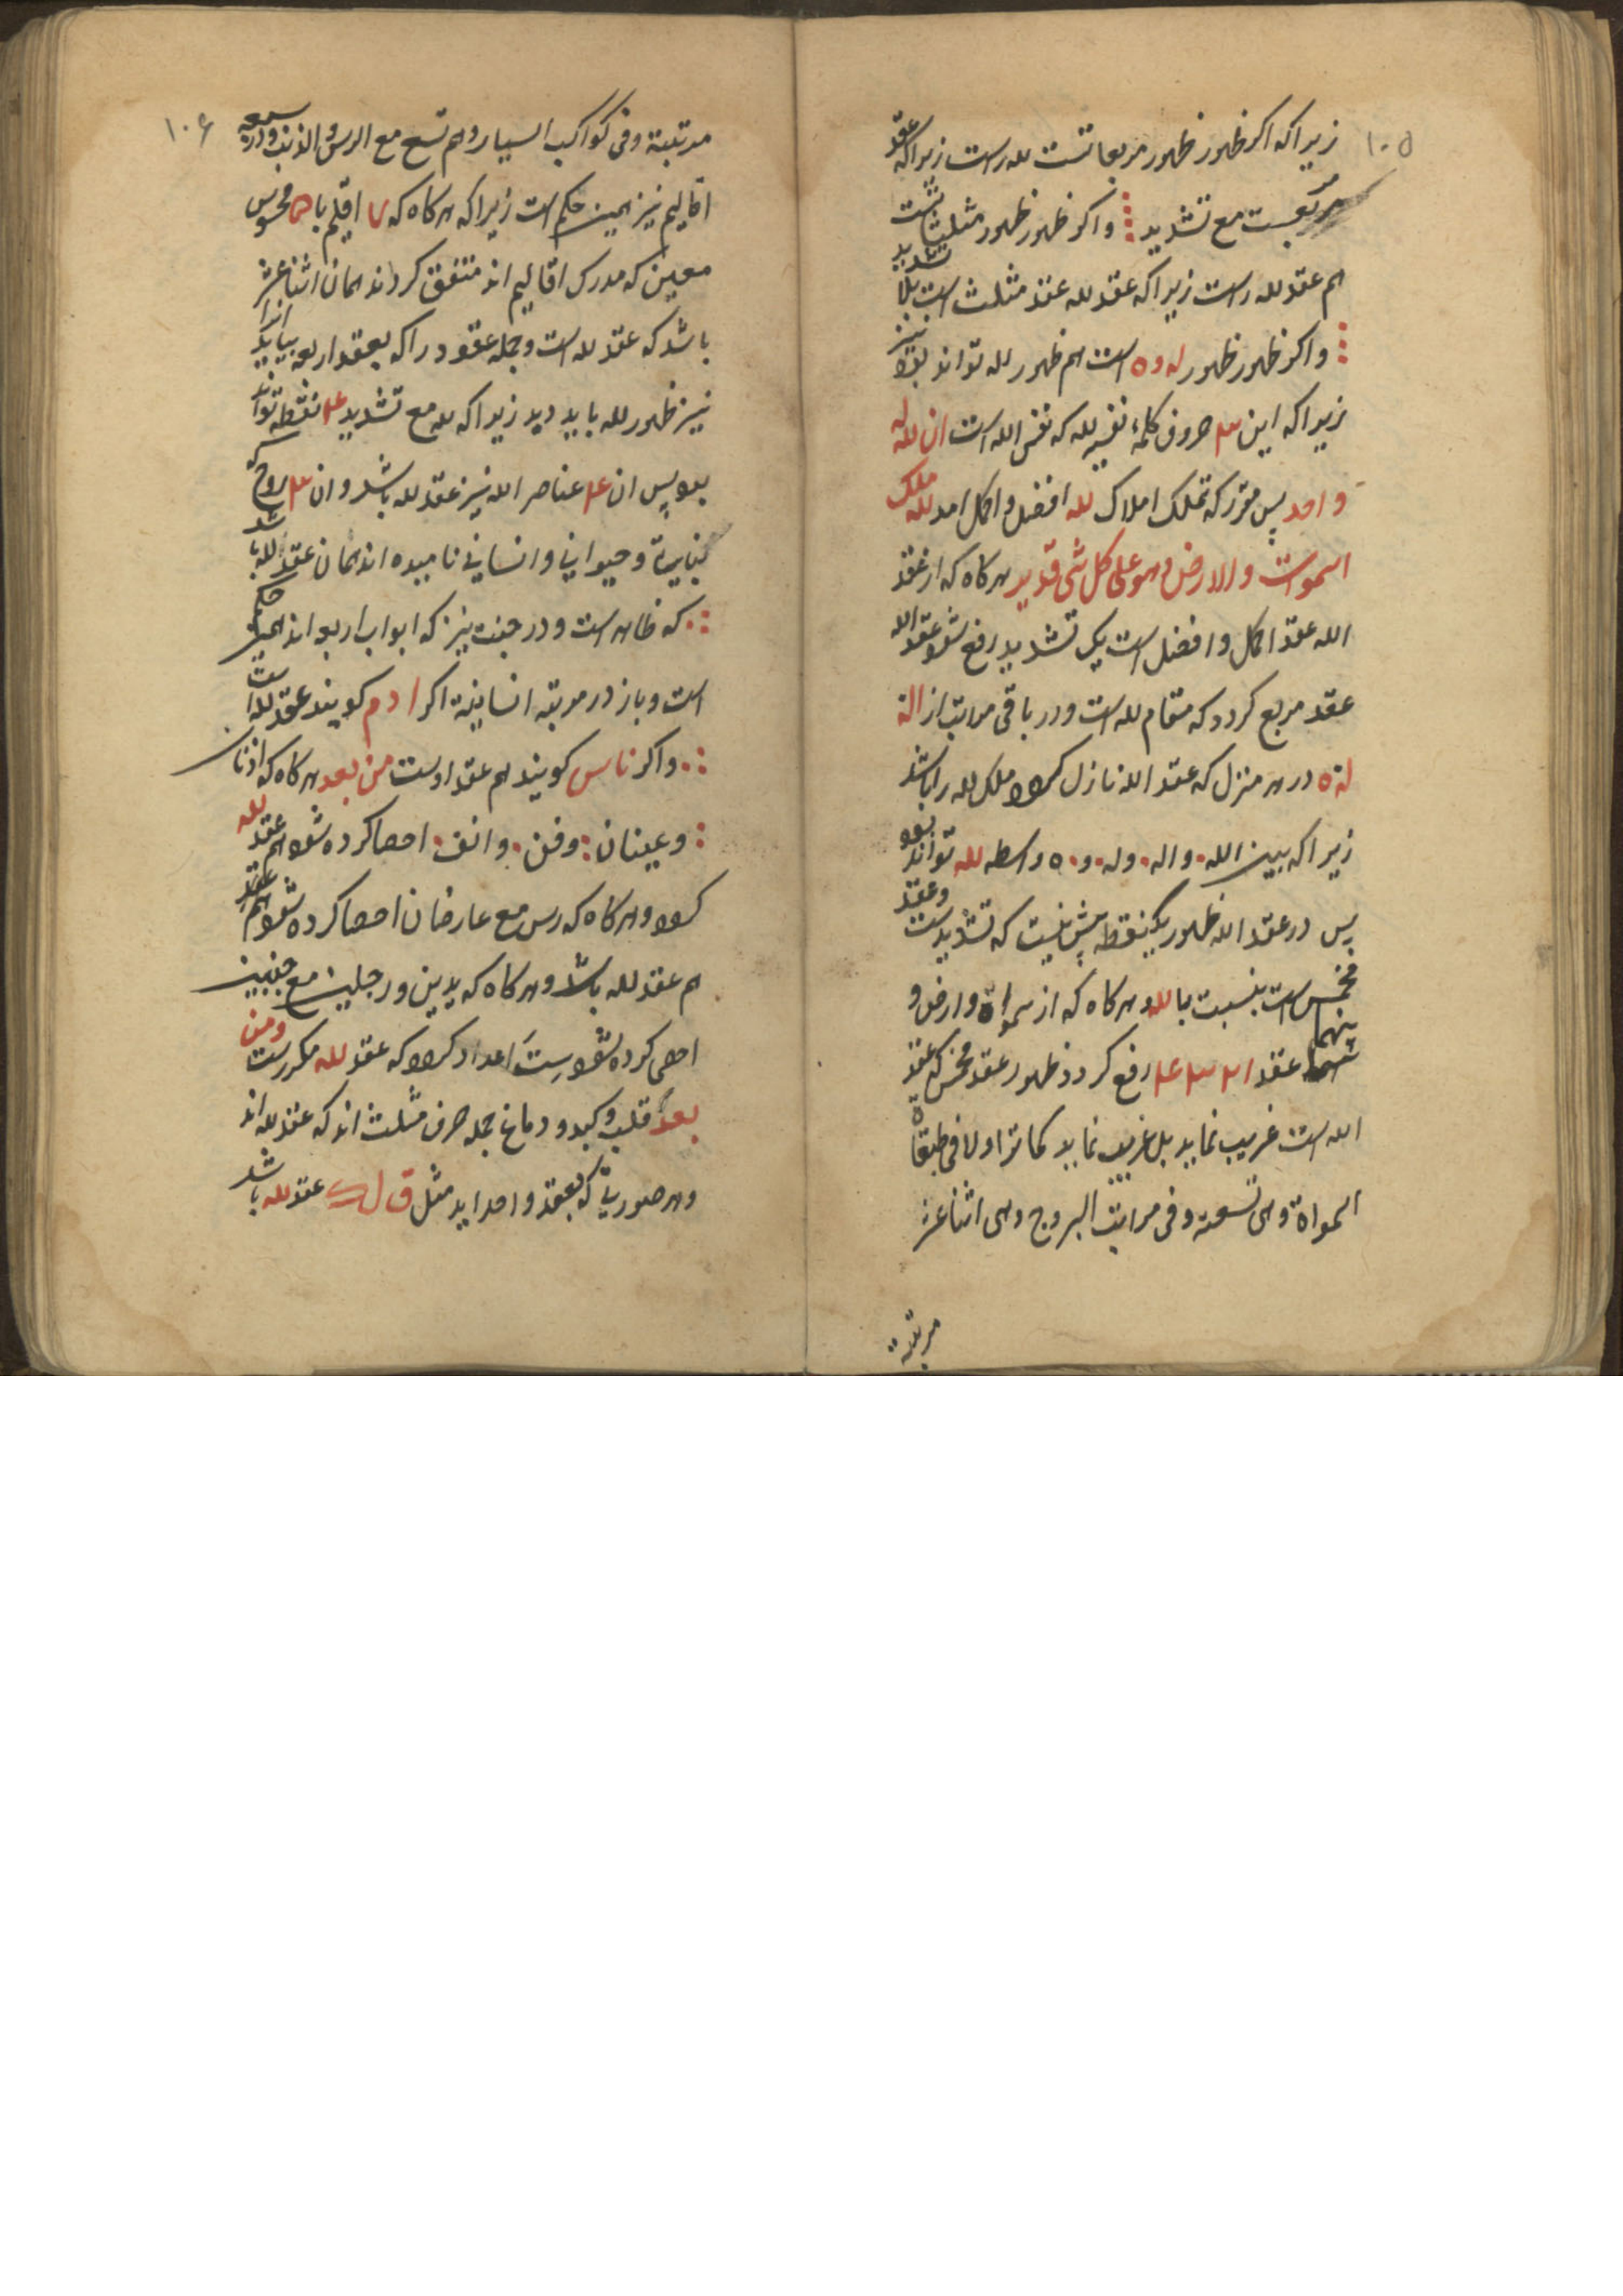 ۱۰۵
زیراکه اکر ظهور ظهور مربعاتست لله راست زیراکه عقد
مربعست مع تشدید و اکر ظهور ظهور مثلثاتست
هم عقد لله راست زیراکه عقد لله عقد مثلث است بلا تشدید
و اکر ظهور ظهور له و ه است هم ظهور لله تواند بود نیز
زیراکه این ۳ حروف کلمۀ نفسیه لله که نفس الله است ان لله له
واحد پس مقرر که تملک املاک لله افضل و اکمل امد لله ملک
السموات والارض وهو علی کل شی قدیر هر کاه که از عقد
الله عقد اکمل و افضل است یک تشدید رفع شود عقد الله
عقد مربع کردد که مقام لله است و در باقی مراتب از اله
له ه در هر منزل که عقد الله نازل کردد ملک لله را باشد
زیراکه بین الله و اله و له و ه واسطه لله تواند بود
پس در عقد الله ظهور یک نقطه بیش نیست که تشدیدست و عقد
مخمس است بنسبت با لله و هر کاه که از سمواة و ارض و
بینهما عقد ۲ ۳ ۴ رفع کردد ظهور عقد مخمس که عقد
الله است غریب نماید بل غریب نماید کما ترا اولا فی طبقاة
السمواة وهی تسعة و فی مراتب البروج وهی اثنا عشر
مرتبة
۱۰۶
مرتبة و فی کواکب السیار و هم تسع مع الرس و الذنب و در سبعه
اقالیم نیز همین حکم است زیراکه هر کاه که ۷ اقلیم با ۵ محسوس
معین که مدرک اقالیم اند متفق کردند همان اثنا عشر
باشد که عقد لله است و جمله عقود را که بعقد اربعه بیاید انرا
نیز ظهور لله باید دید زیراکه لله مع تشدید ۴ نقطه تواند
بود پس ان ۴ عناصر الله نیز عقد لله باشد و ان ۳ روح که
نباتیة و حیوانی و انسانی نامیده اند همان عقد لله باشد
که ظاهر است و در جنت نیز که ابواب اربعه اند همین حکم
است و باز در مرتبه انسانیة اکر ادم کویند عقد لله است
و اکر ناس کویند هم عقد اوست من بعد هر کاه که اذنان
و عینان و فن و انف احصا کرده شود هم عقد لله
کردد و هر کاه که رس مع عارضان احصا کرده شود هم
هم عقد لله باشد و هر کاه که یدین و رجلین مع جنبین
احصی کرده شود ست اعداد کردد که عقد لله مکررست و من
بعد قلب و کبد و دماغ جمله حرف مثلث اند که عقد لله اند
و هر صوریة که بعقد واحد اید مثل ق ل ک عقد لله باشد